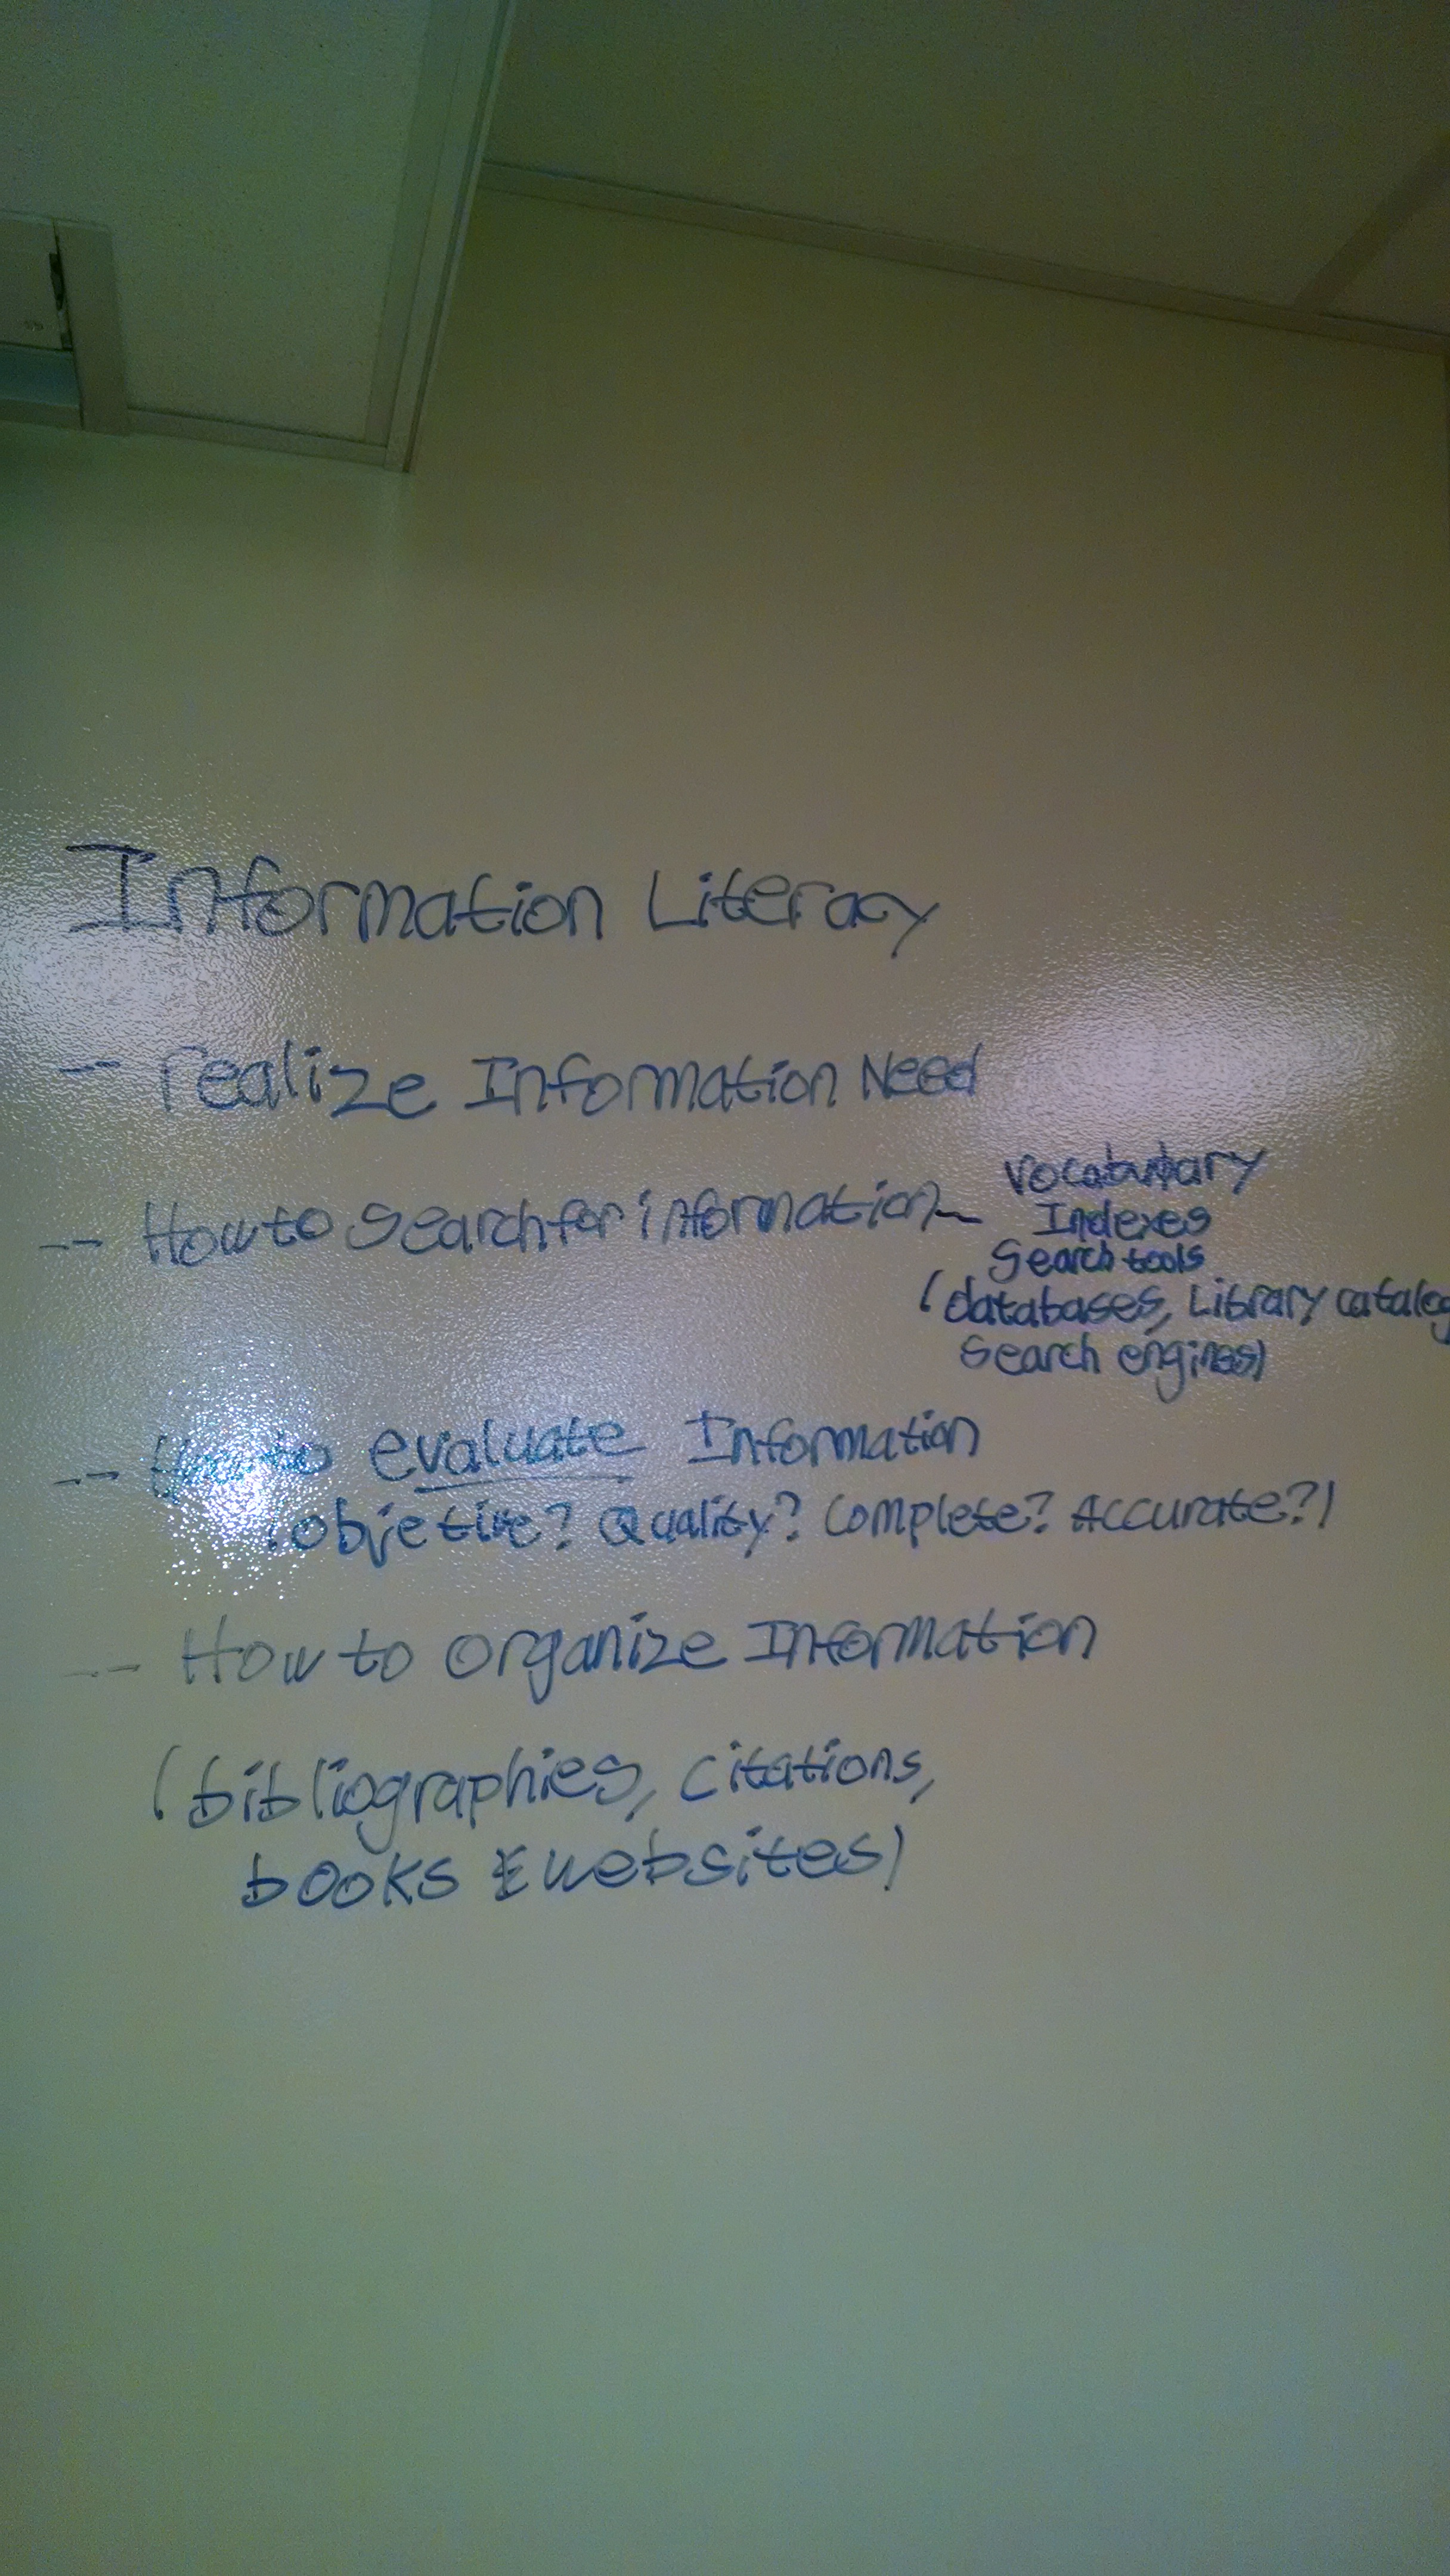 Information Literacy
-- realize Information Need
-- How to Search for information -
vocabulary
Indexes
Search tools
(databases, Library catalog
Search engines)
-- How to evaluate Information
(objetive? Quality? Complete? Accurate?)
-- How to organize Information
(bibliographies, citations,
books & websites)